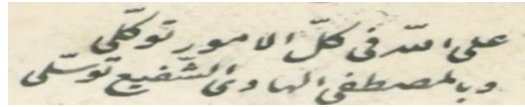 على الله فى كلّ الامور توكّلى
وبالمصطفى الهادى الشّفيع توسّلى